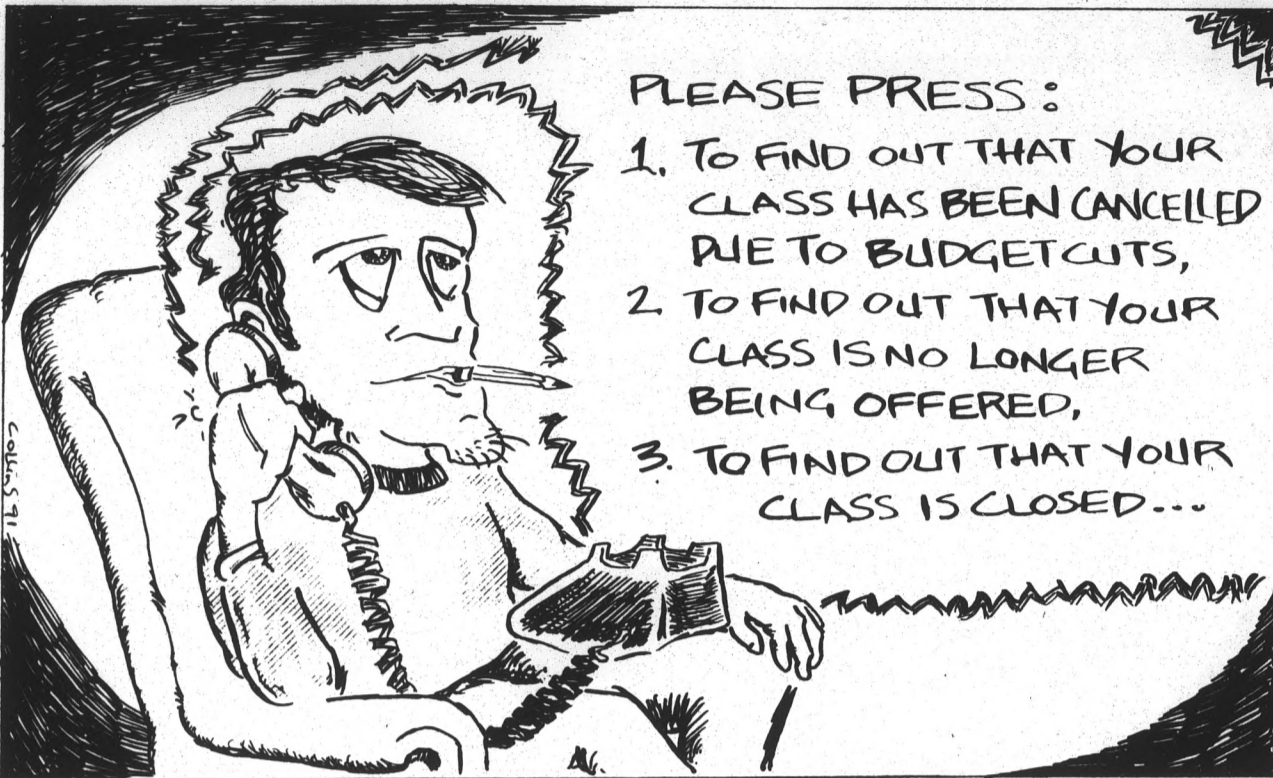 PLEASE PRESS:
1. TO FIND OUT THAT YOUR
CLASS HAS BEEN CANCELLED
DUE TO BUDGET CUTS,
2 TO FIND OUT THAT YOUR
CLASS IS NO LONGER
BEING OFFERED,
3. TO FIND OUT THAT YOUR
CLASS IS CLOSED...
COLLINS 91